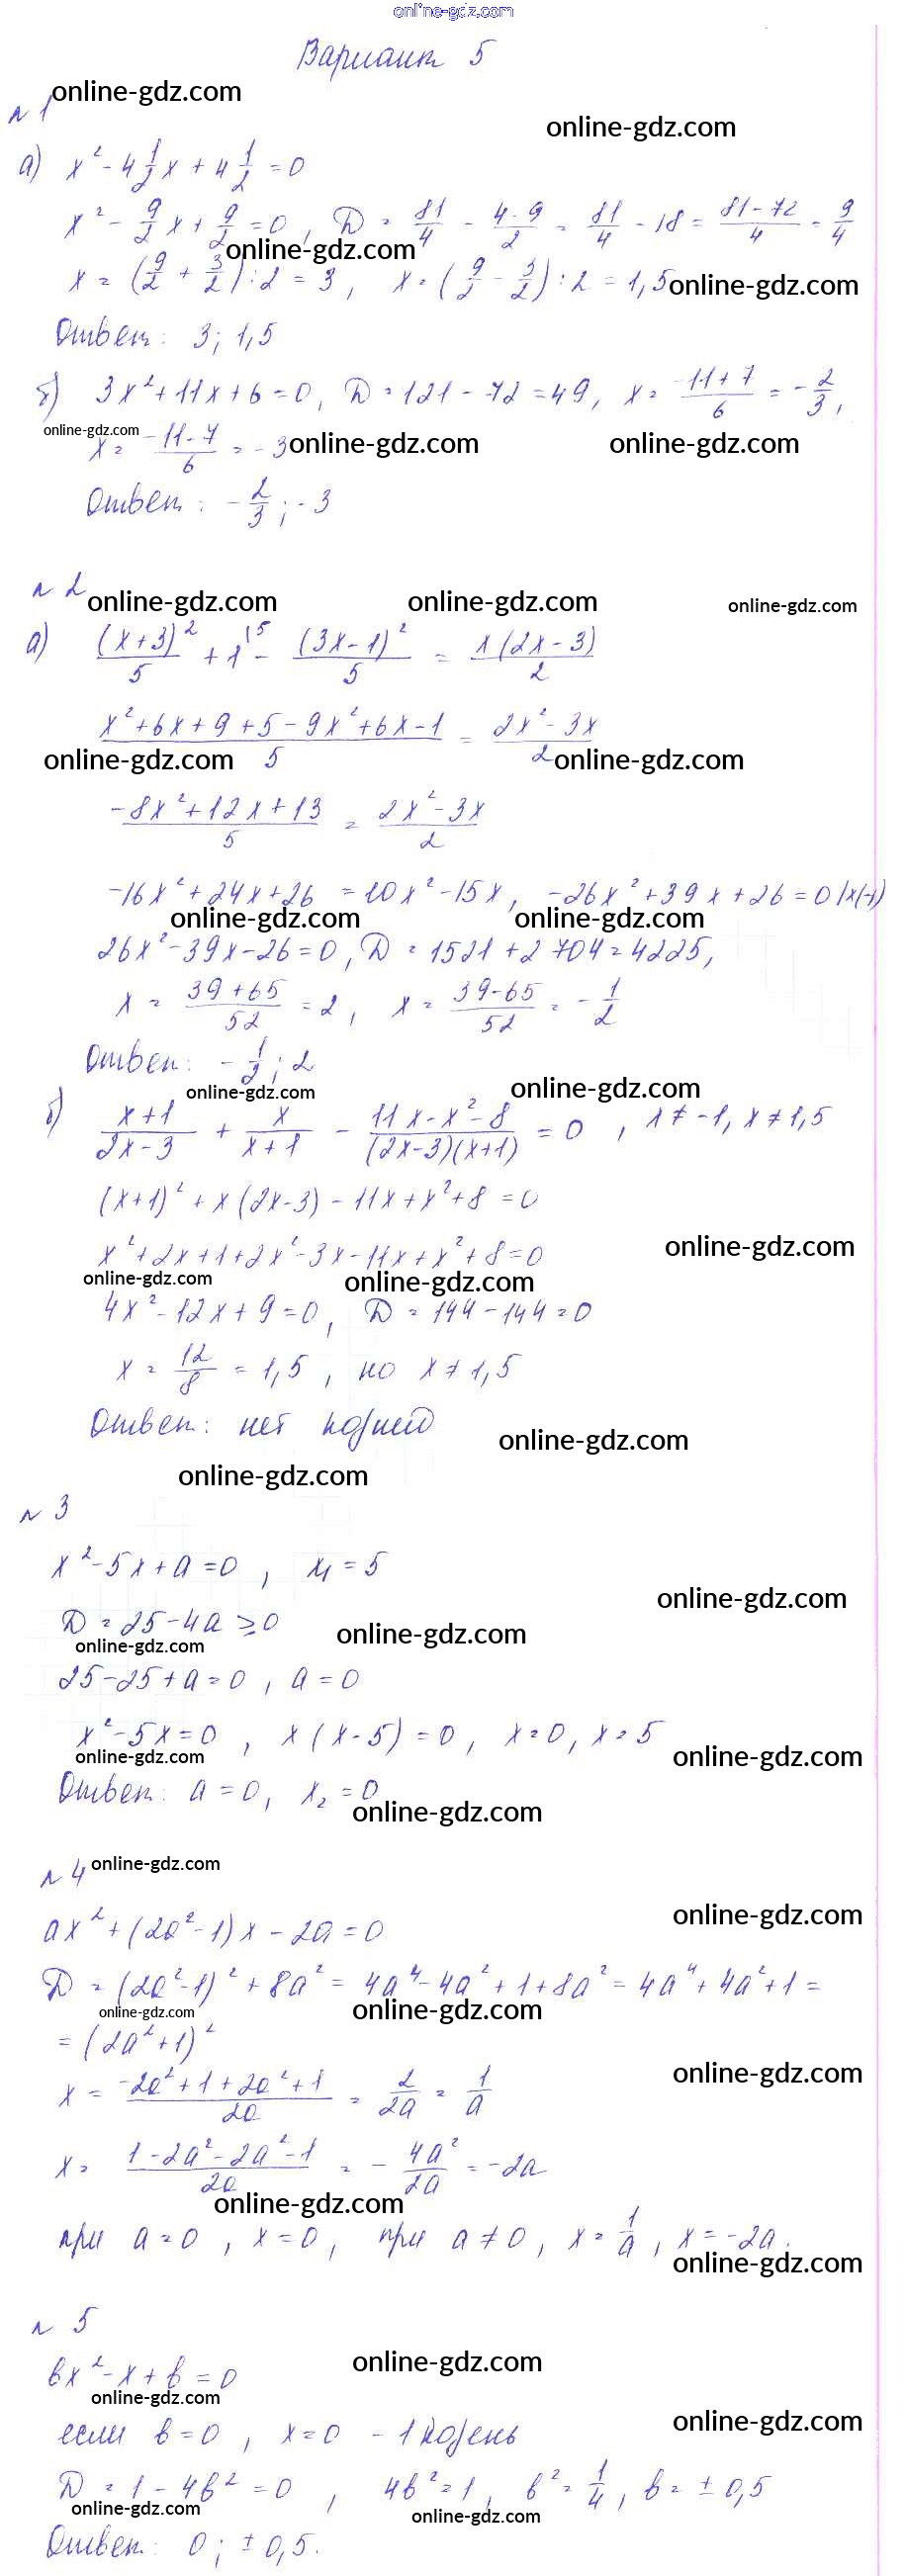 online-gdz.com
Вариант 5
online-gdz.com
№ 1
online-gdz.com
а) x² - 4 1/2 x + 4 1/2 = 0
x² - 9/2 x + 9/2 = 0, D = 81/4 - 4·9/2 = 81/4 - 18 = (81-72)/4 = 9/4
online-gdz.com
x = (9/2 + 3/2) : 2 = 3, x = (9/2 - 3/2) : 2 = 1,5
online-gdz.com
Ответ: 3; 1,5
б) 3x² + 11x + 6 = 0, D = 121 - 72 = 49, x = (-11+7)/6 = -2/3,
online-gdz.com
x = (-11-7)/6 = -3
online-gdz.com online-gdz.com
Ответ: -2/3; -3
№ 2
online-gdz.com online-gdz.com online-gdz.com
а) (x+3)²/5 + 1 (5 - (3x-1)²/5 = x(2x-3)/2
(x²+6x+9+5-9x²+6x-1)/5 = (2x²-3x)/2
online-gdz.com online-gdz.com
(-8x²+12x+13)/5 = (2x²-3x)/2
-16x² + 24x + 26 = 10x² - 15x, -26x² + 39x + 26 = 0 |x(-1)
online-gdz.com online-gdz.com
26x² - 39x - 26 = 0, D = 1521 + 2704 = 4225,
x = (39+65)/52 = 2, x = (39-65)/52 = -1/2
Ответ: -1/2; 2
online-gdz.com online-gdz.com
б) (x+1)/(2x-3) + x/(x+1) - (11x-x²-8)/((2x-3)(x+1)) = 0, x ≠ -1, x ≠ 1,5
(x+1)² + x(2x-3) - 11x + x² + 8 = 0
x² + 2x + 1 + 2x² - 3x - 11x + x² + 8 = 0
online-gdz.com
online-gdz.com online-gdz.com
4x² - 12x + 9 = 0, D = 144 - 144 = 0
x = 12/8 = 1,5, но x ≠ 1,5
Ответ: нет корней
online-gdz.com
online-gdz.com
№ 3
x² - 5x + a = 0, x₁ = 5
online-gdz.com
D = 25 - 4a ≥ 0
online-gdz.com online-gdz.com
25 - 25 + a = 0, a = 0
x² - 5x = 0, x(x-5) = 0, x = 0, x = 5
online-gdz.com online-gdz.com
Ответ: a = 0, x₂ = 0
online-gdz.com
№ 4
online-gdz.com
online-gdz.com
ax² + (2a²-1)x - 2a = 0
D = (2a²-1)² + 8a² = 4a⁴ - 4a² + 1 + 8a² = 4a⁴ + 4a² + 1 =
online-gdz.com online-gdz.com
= (2a²+1)²
online-gdz.com
x = (-2a²+1+2a²+1)/2a = 2/2a = 1/a
x = (1-2a²-2a²-1)/2a = -4a²/2a = -2a
online-gdz.com
при a = 0, x = 0, при a ≠ 0, x = 1/a, x = -2a.
online-gdz.com
№ 5
online-gdz.com
bx² - x + b = 0
online-gdz.com
online-gdz.com
если b = 0, x = 0 - 1 корень
D = 1 - 4b² = 0, 4b² = 1, b² = 1/4, b = ± 0,5
online-gdz.com online-gdz.com
Ответ: 0; ± 0,5.